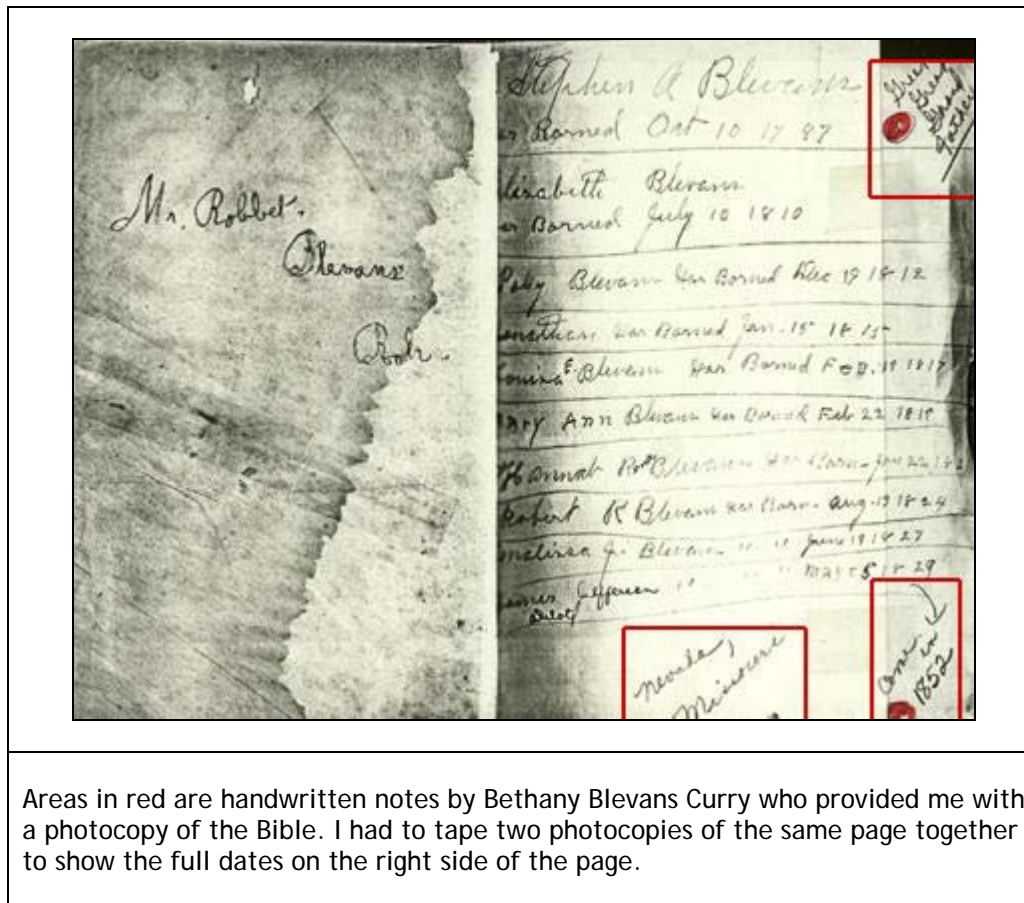 Mr. Robbet.
Blevans
Rob.
Stephen A Blevans
Borned Oct 10 17 87
lisabeth Blevans
Borned July 10 1810
Polly Blevans was Borned Dec 19 1812
onathan was Borned Jan. 15 1815
Blevans was Borned Feb. 19 1817
ary Ann Blevans was Borned Feb 22 1819
Hannah Blevans was Born Jan 22 182
Robert K Blevans was Born Aug 19 1824
melissa J. Blevans " " June 19 1827
ames Jefferson " " " May 5 1829
Great
Great
Grand
Father
Nevada,
Missourie
came
in
1852
Areas in red are handwritten notes by Bethany Blevans Curry who provided me with
a photocopy of the Bible. I had to tape two photocopies of the same page together
to show the full dates on the right side of the page.